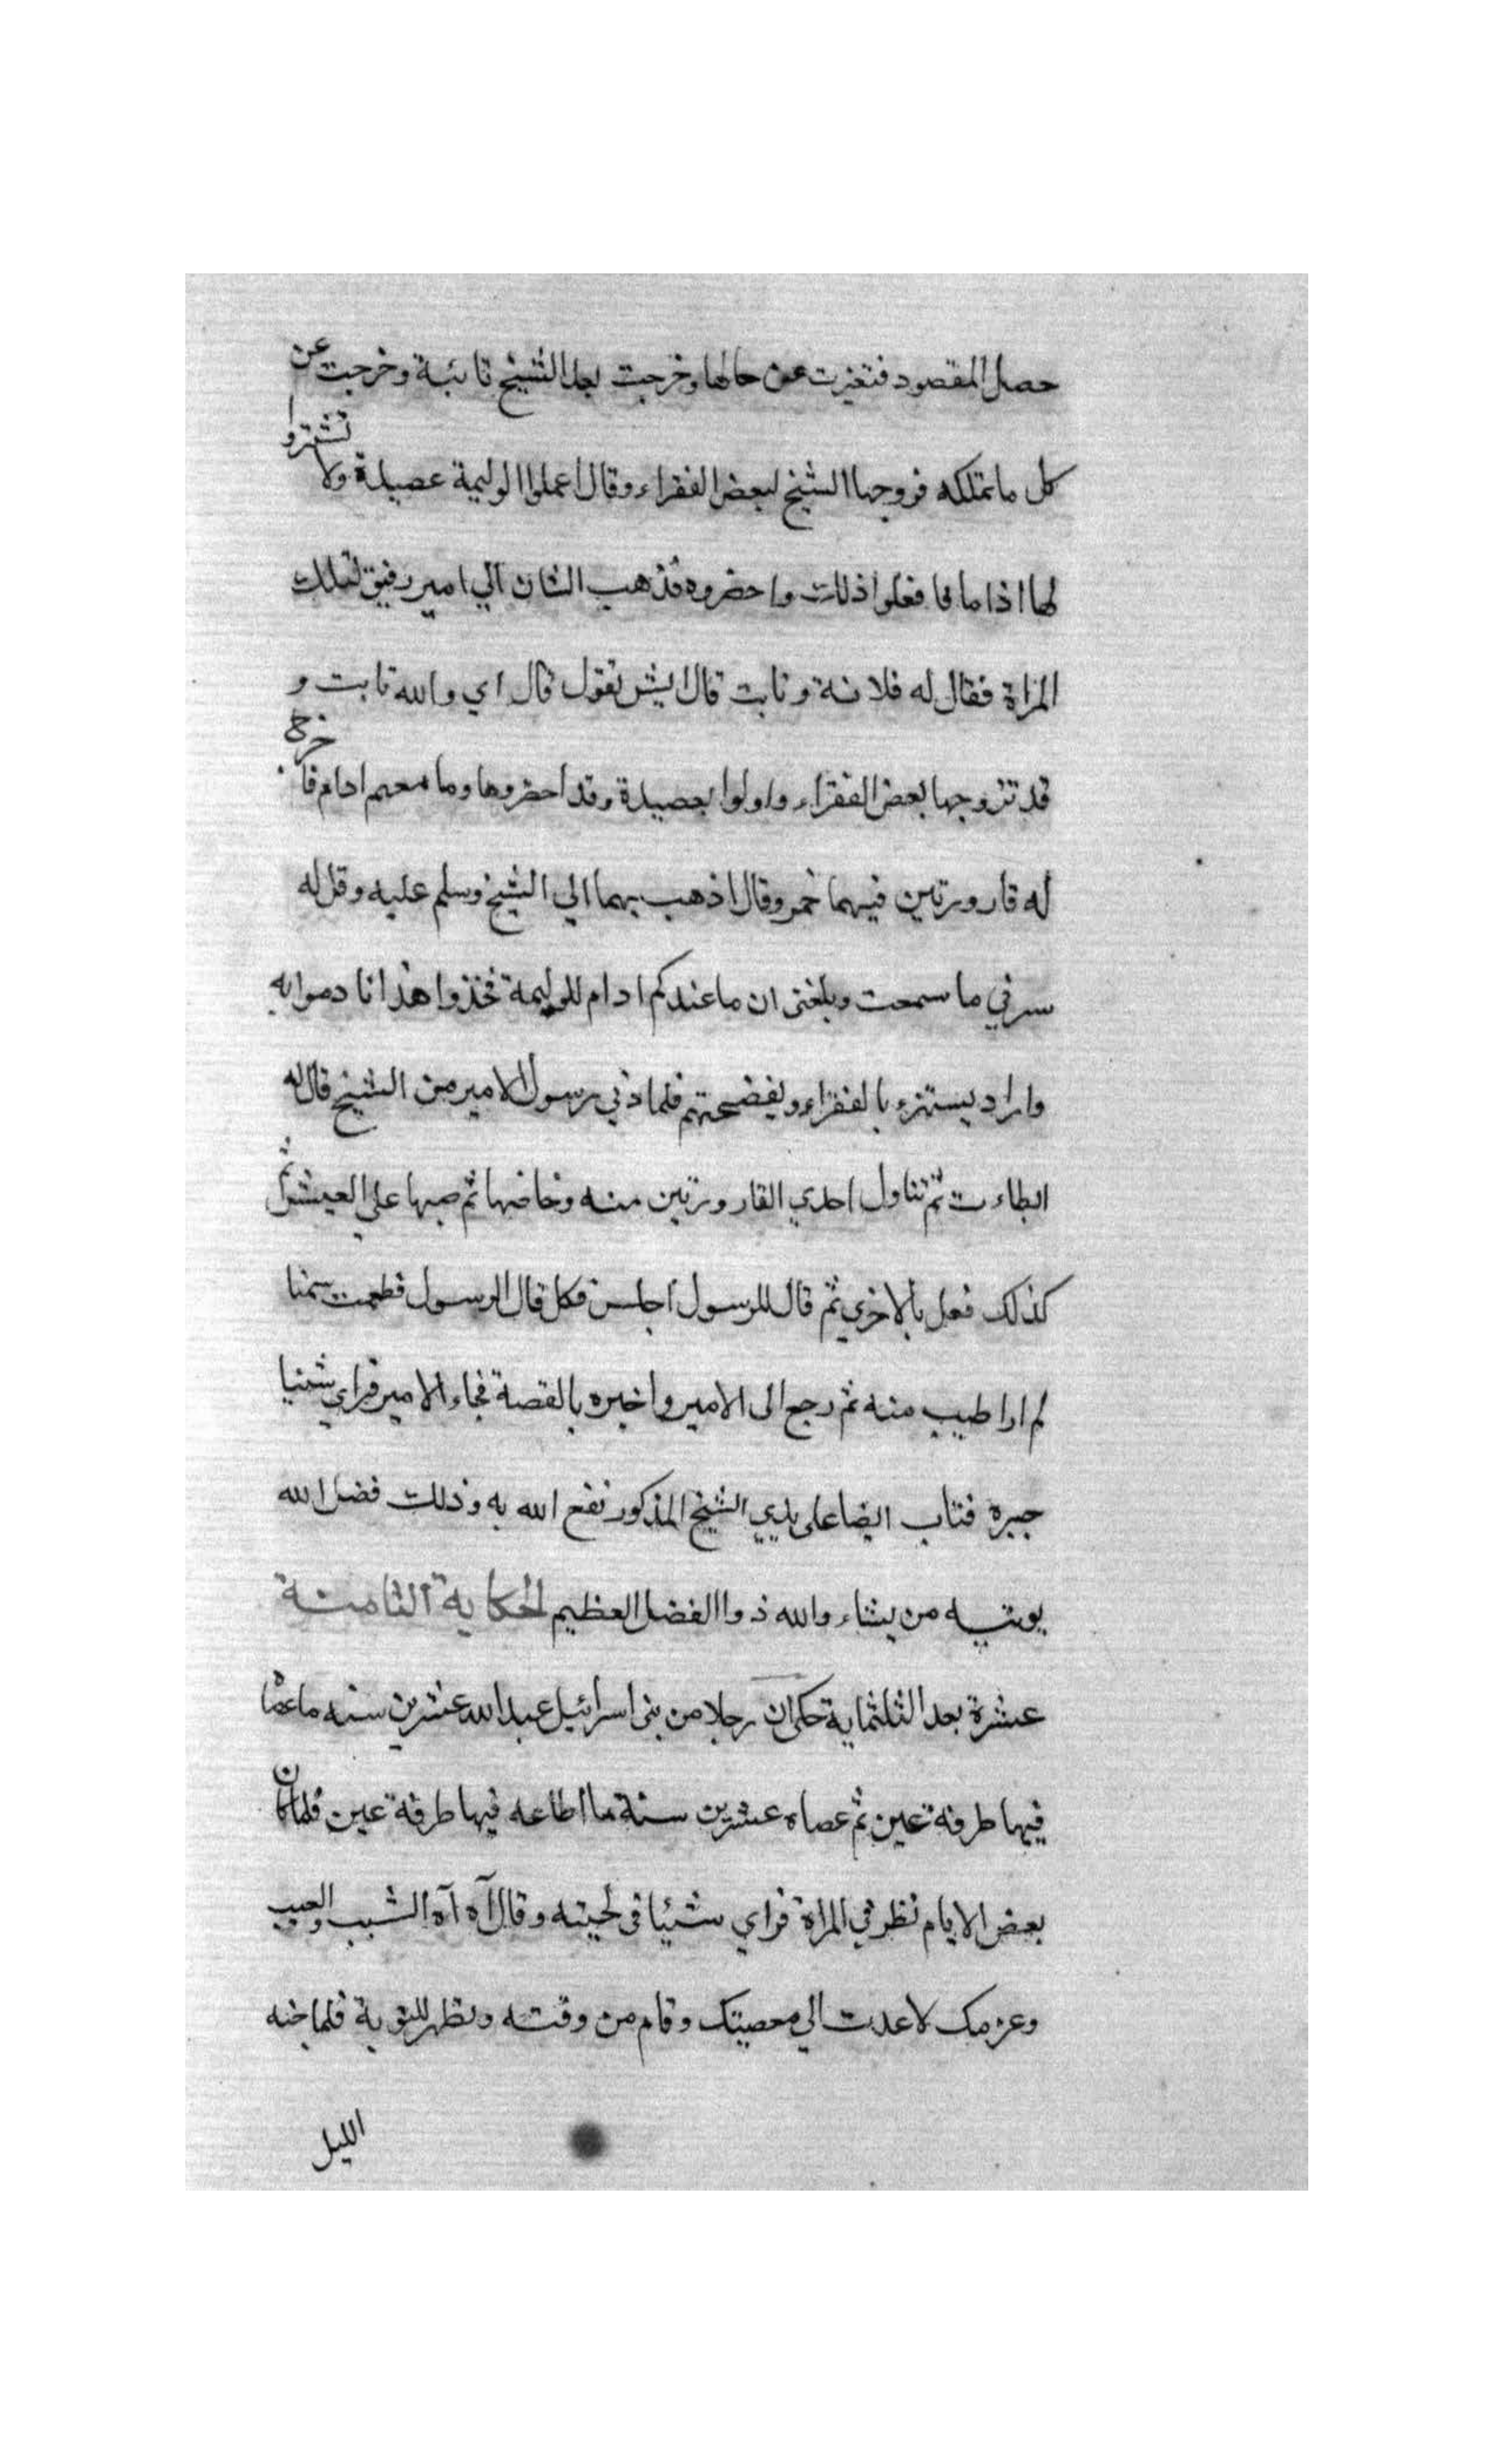 حصل المقصود فتغيرت عن حالها وخرجت بعد الشيخ تائبة وخرجت عن
كل ما تملكه فزوجها الشيخ لبعض الفقراء وقال اعملوا الوليمة عصيدة ولا تشتروا
لها اداما فعلوا ذلك واحضروه فذهب الى امير رفيق لتلك
المراة فقال له فلانة تابت قال ايش تقول قال اي والله تابت و
قد تزوجها بعض الفقراء واولوا بعصيدة وقد احضروها وما معهم ادام فاخرج
له قارورتين فيهما خمر وقال اذهب بهما الي الشيخ وسلم عليه وقل له
سرني ما سمعت وبلغنى ان ما عندكم ادام للوليمة فخذوا هذا نا دموا به
واراد يستهزء بالفقراء ويفضحهم فلما دني رسول الامير من الشيخ قال له
ابطاءت ثم تناول احدي القارورتين منه وخاضها ثم صبها علي العيش ثم
كذلك فعل بالاخري ثم قال للرسول اجلس فكل قال الرسول فطعمت سمنا
لم ار اطيب منه ثم رجع الى الامير واخبره بالقصة فجاء الامير فراي شيئا
حيره فتاب ايضا على يدي الشيخ المذكور نفع الله به وذلك فضل الله
يوتيه من يشاء والله ذوا الفضل العظيم الحكاية الثامنة
عشرة بعد الثلثماية حكى ان رجلا من بنى اسرائيل عبد الله عشرين سنه ما عصا
فيها طرفة عين ثم عصاه عشرين سنة ما اطاعه فيها طرفة عين فلما كان
بعض الايام نظر في المراة فراي شيئا في لحيته وقال آه آه الشيب والعيب
وعزمك لا عدت الي معصيتك وقام من وقته وتطهر للتوبة فلما جنه
الليل